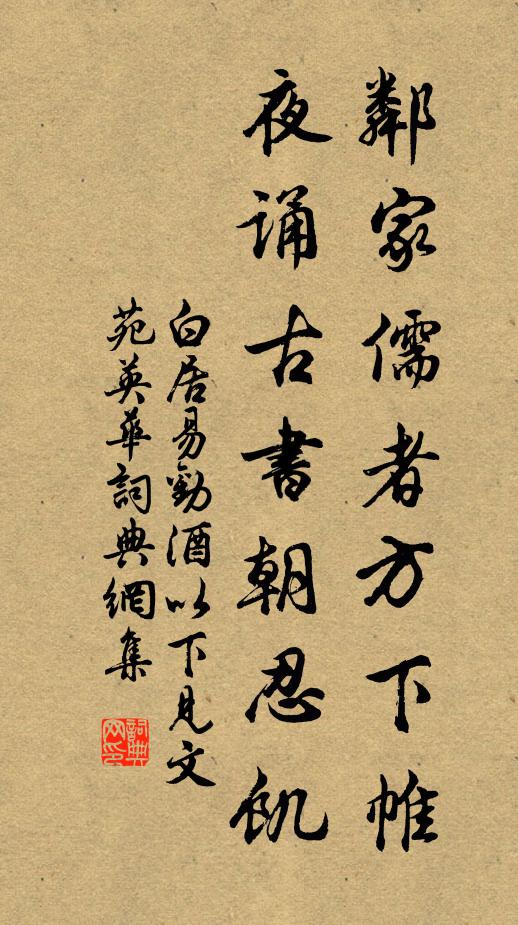 鄰家儒者方下帷
夜誦古書朝忍飢
白居易勸酒以下見文
苑英華詞典網集
詞典网印